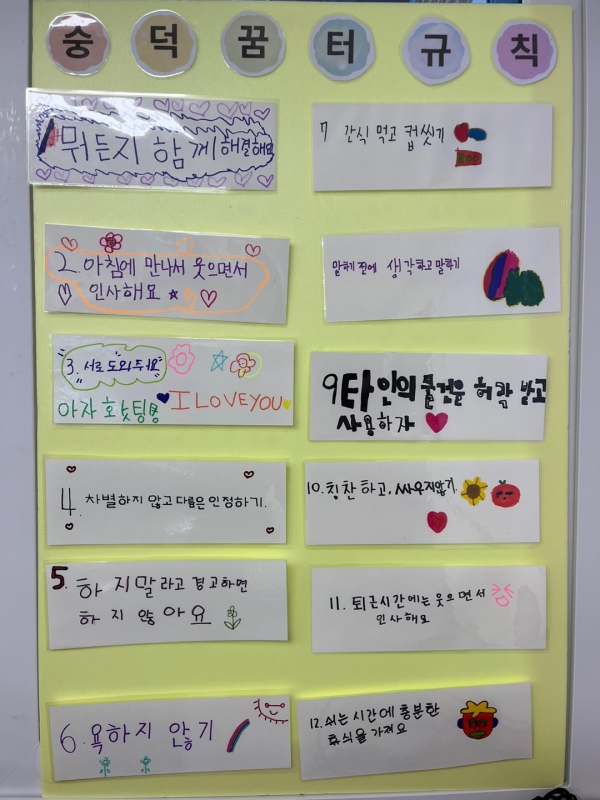 숭덕꿈터규칙
뭐든지 함께 해결해요
2. 아침에 만나서 웃으면서
인사해요
3. 서로 도와주워요
아자 화잇팅
I LOVE YOU
4. 차별하지 않고 다름은 인정하기.
5. 하지말라고 경고하면
하지 않아요
6. 욕하지 안기
7 간식 먹고 컵씻기
말하기 전에 생각하고 말하기
9 타인의 물건을 허락 받고
사용하자
10. 칭찬하고, 싸우지않기.
11. 퇴근시간에는 웃으면서
인사해요
12. 쉬는 시간에 충분한
휴식을 가져요